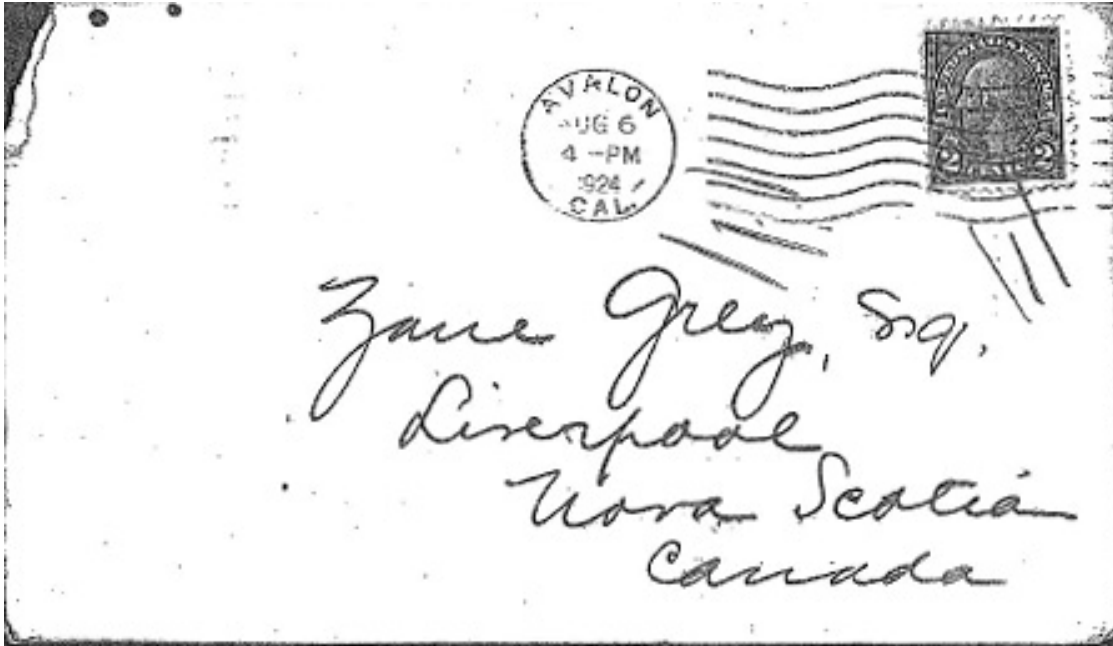 AVALON
AUG 6
4 -PM
1924
CAL.
2 CENTS 2
Zane Grey, Esq.
Liverpool
Nova Scotia
Canada